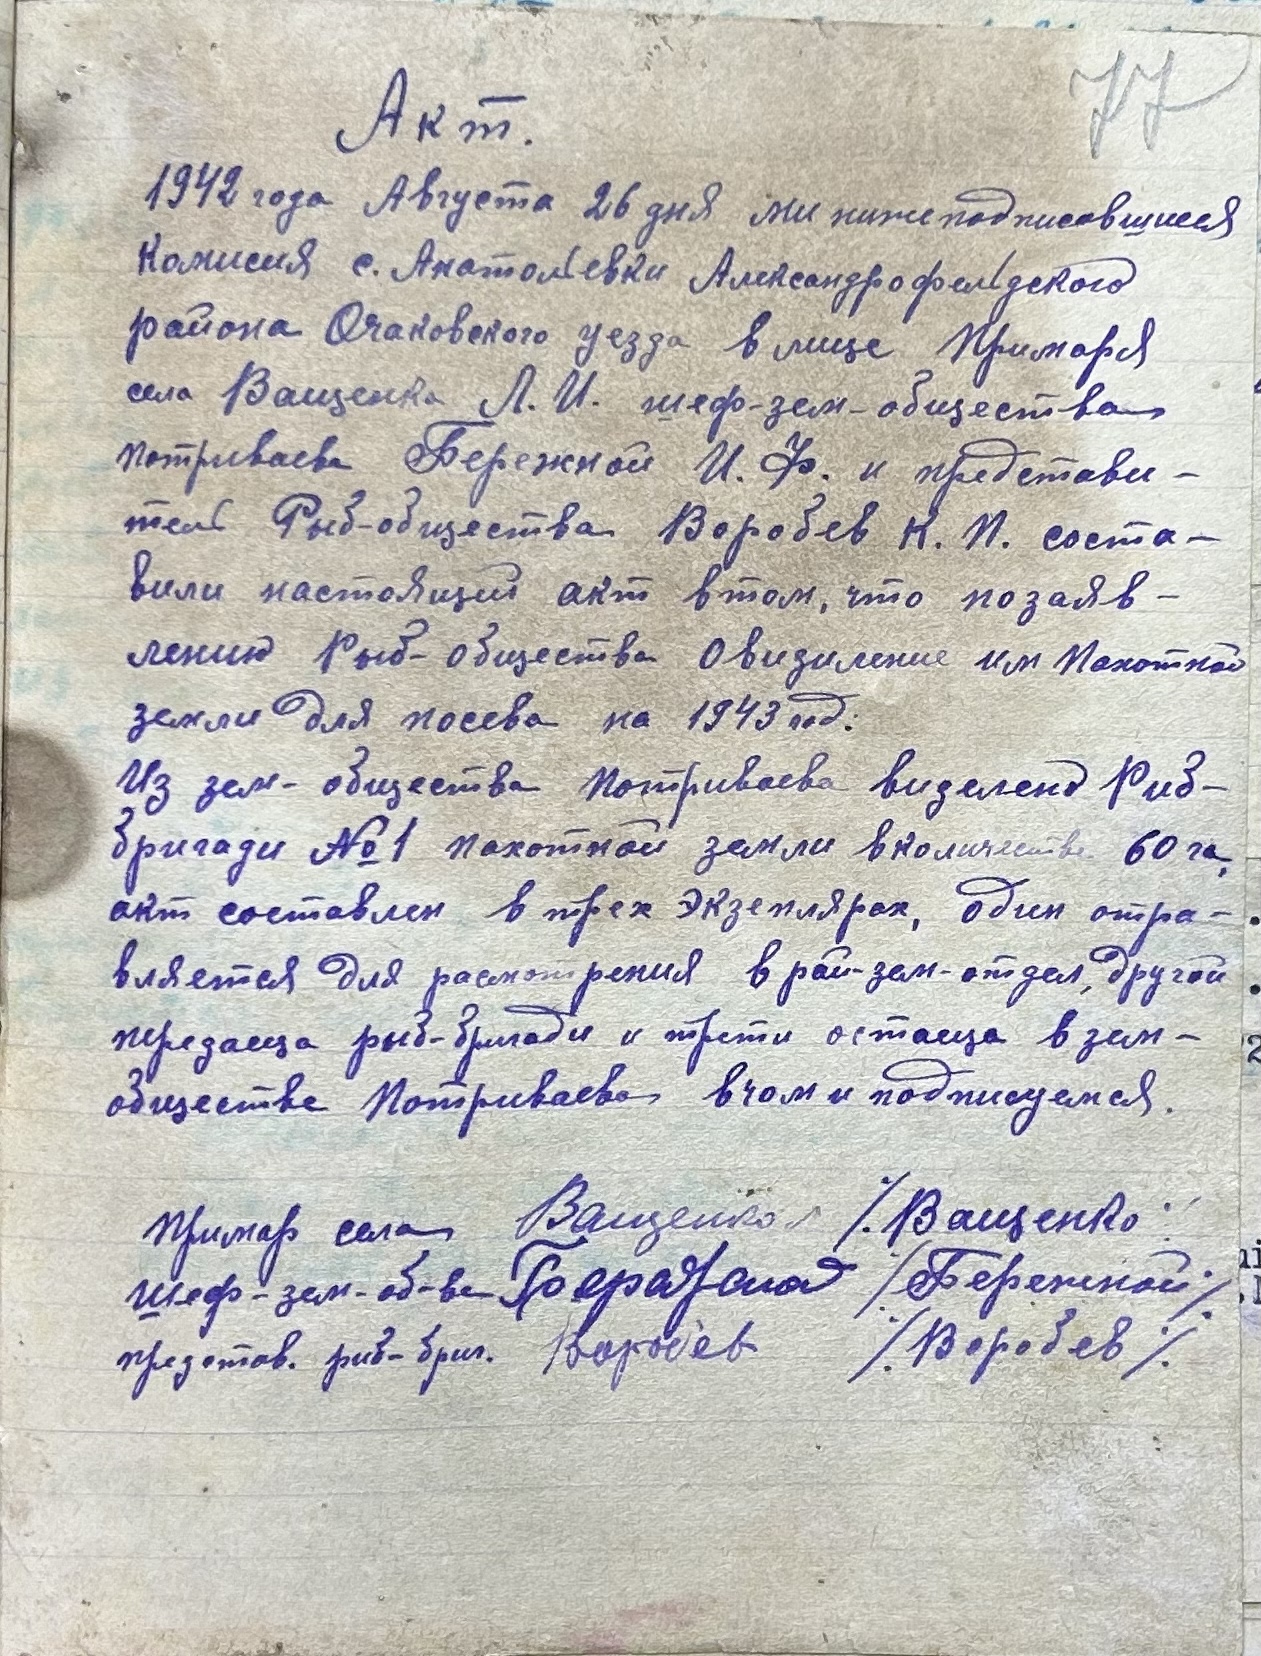 77
Акт.
1942 года Августа 26 дня ми нижеподписавшиеся
Комисия с. Анатольевки Александрофельдского
района Очаковского уезда в лице Примаря
села Ващенка Л. И. шеф-зем-общества
Потриваева Бережной И. Ф. и представи-
тель Рыб-общества Воробев К. П. соста-
вили настоящий акт в том, что по заяв-
лению Рыб-общества О видиление им Пахотной
земли для посева на 1943 год.
Из зем-общества Потриваева виделено Риб-
бригади №1 пахотной земли в количестве 60 га,
акт составлен в трех Экземплярах, один отра-
вляется для расмотрения в рай-зем-отдел, другой
передаеца рыб-бригади и трети остаеца в зем-
обществе Потриваева в чом и подписуемся.
Примар села Ващенко /Ващенко/
шеф-зем-об-ва /Бережной/
представ. риб-бриг. Воробев /Воробев/